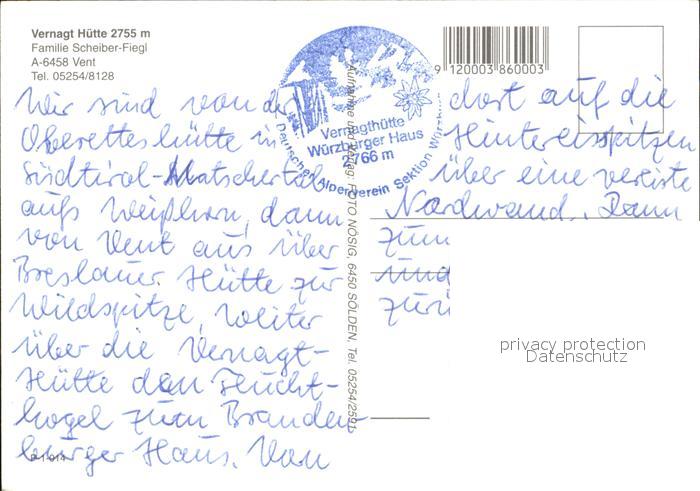 Vernagt Hütte 2755 m
Familie Scheiber-Fiegl
A-6458 Vent
Tel. 05254/8128
9 120003 860003
Vernagthütte
Würzburger Haus
2766 m
Deutscher Alpenverein Sektion Würz
Aufnahme und Verlag: FOTO NOSIG, 6450 SÖLDEN, Tel. 05254/2591
Wir sind von der
Oberetteshütte in
Südtirol-Matschertal
aufs Weißhorn, dann
von Vent aus über
Breslauer Hütte zur
Wildspitze, weiter
über die Vernagt-
Hütte den Flucht-
kogel zum Branden-
burger Haus. Von
dort auf die
Hintereisspitzen
über eine vereiste
Nordwand. Dann
zum
und
zurü
privacy protection
Datenschutz